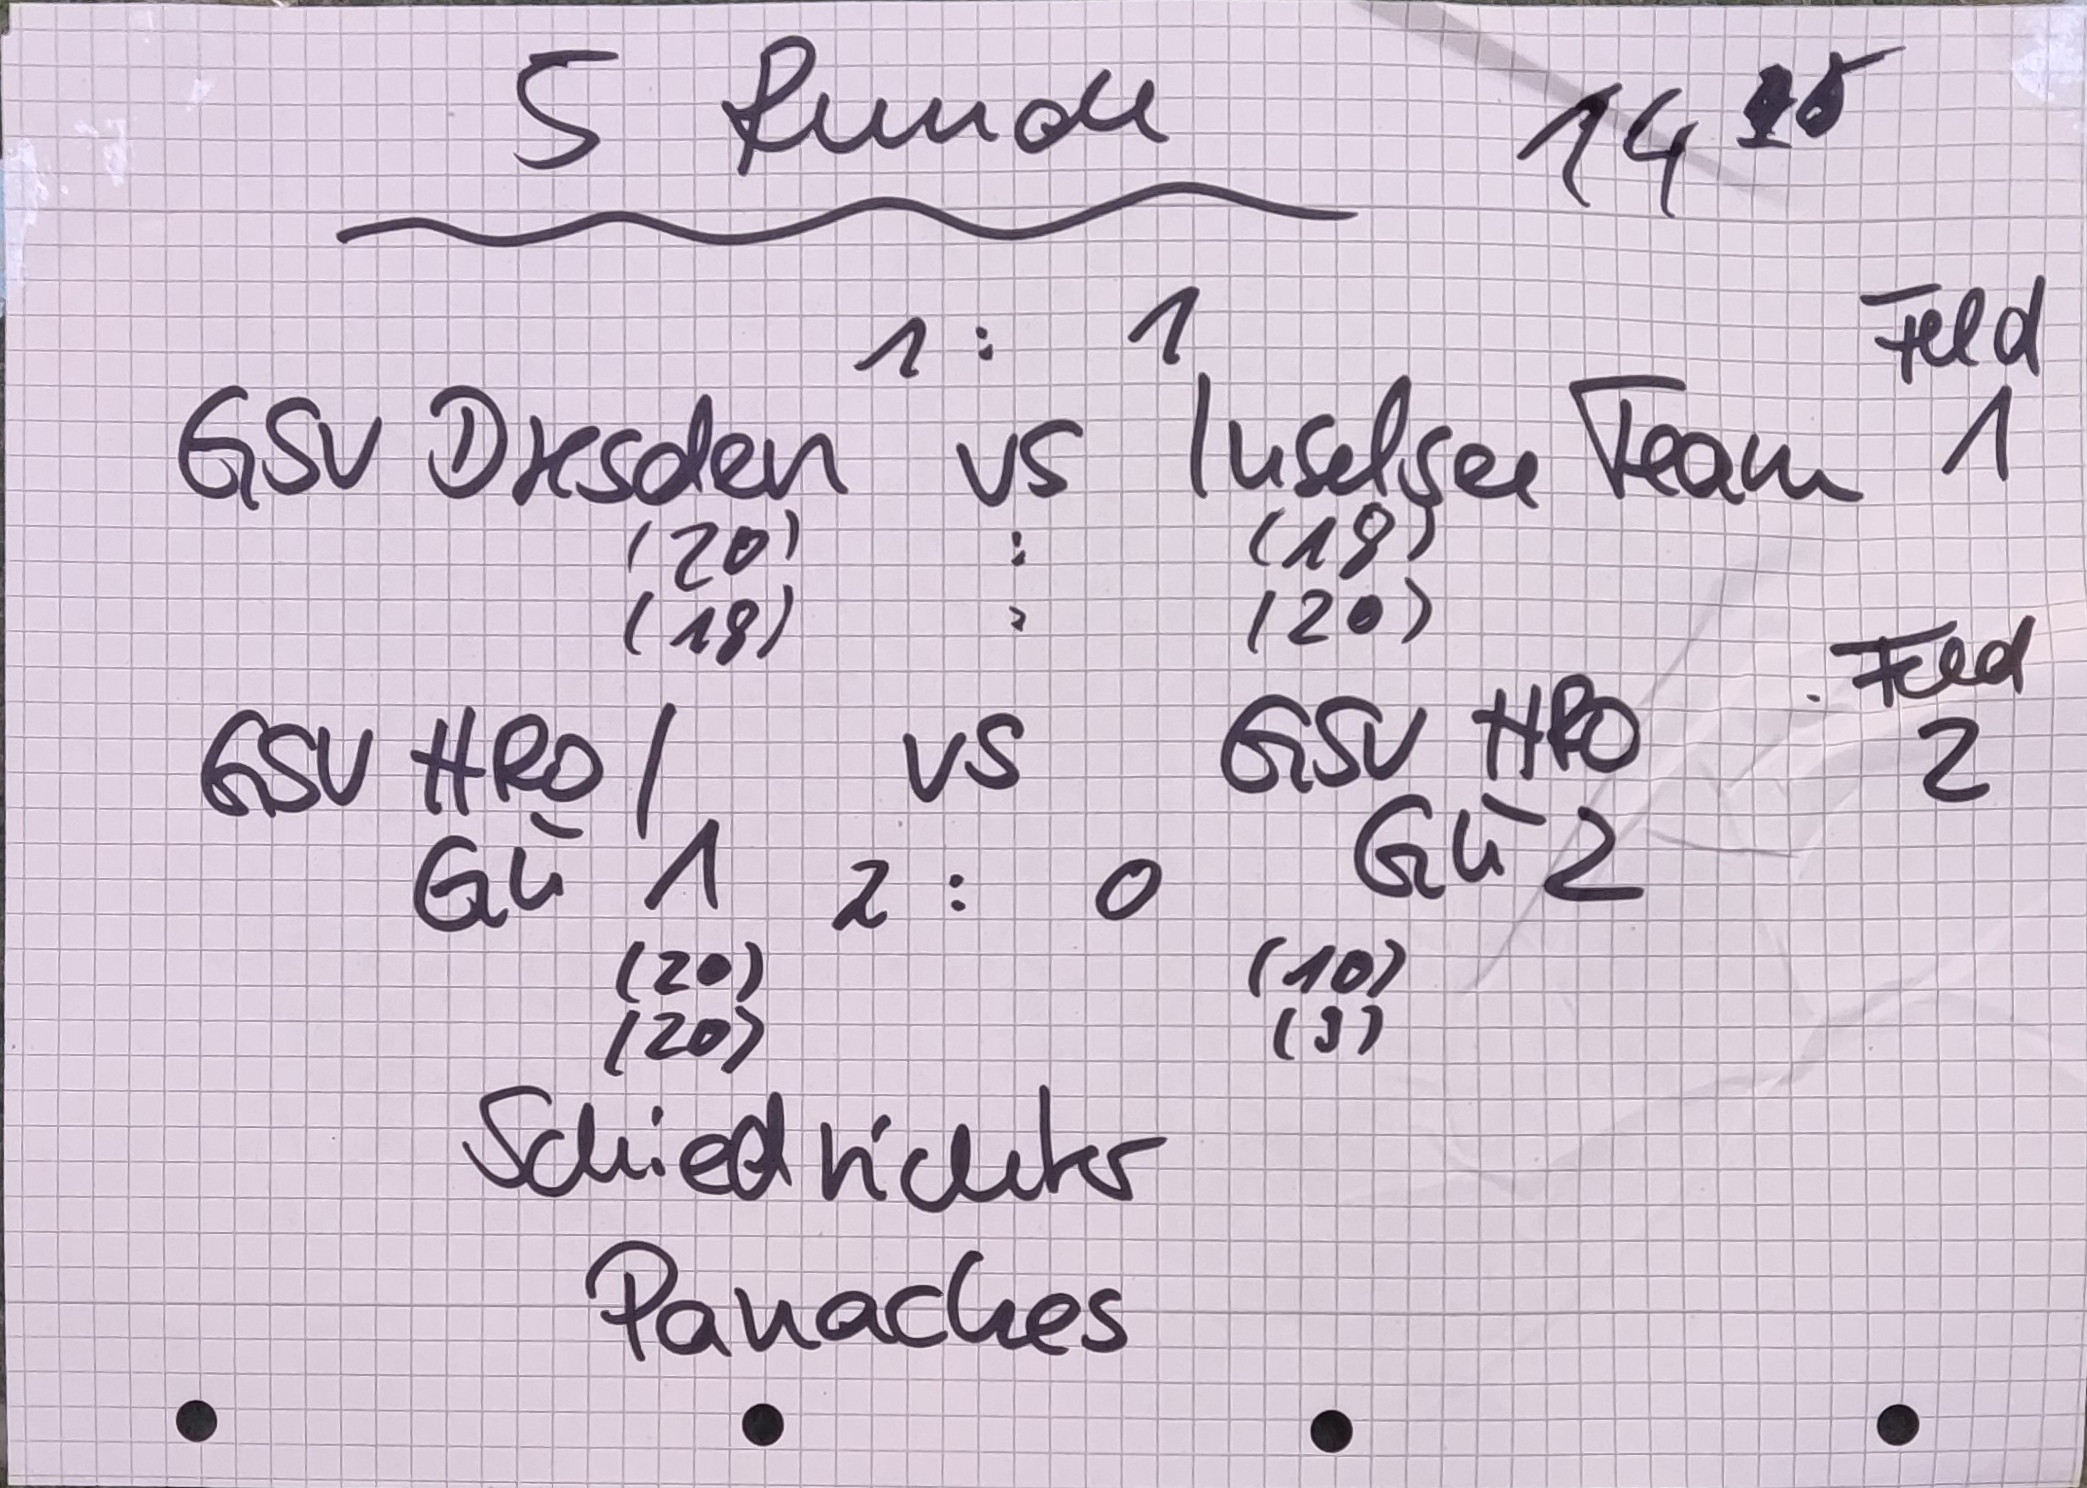 5 Runde 14
1 : 1 Feld
GSV Dresden vs Inselsee Team 1
(20) : (18)
(18) : (20)
Feld
GSV HRO / vs GSV HRO 2
GÜ 1 2 : 0 GÜ 2
(20) (10)
(20) (9)
Schiedrichter
Panaches